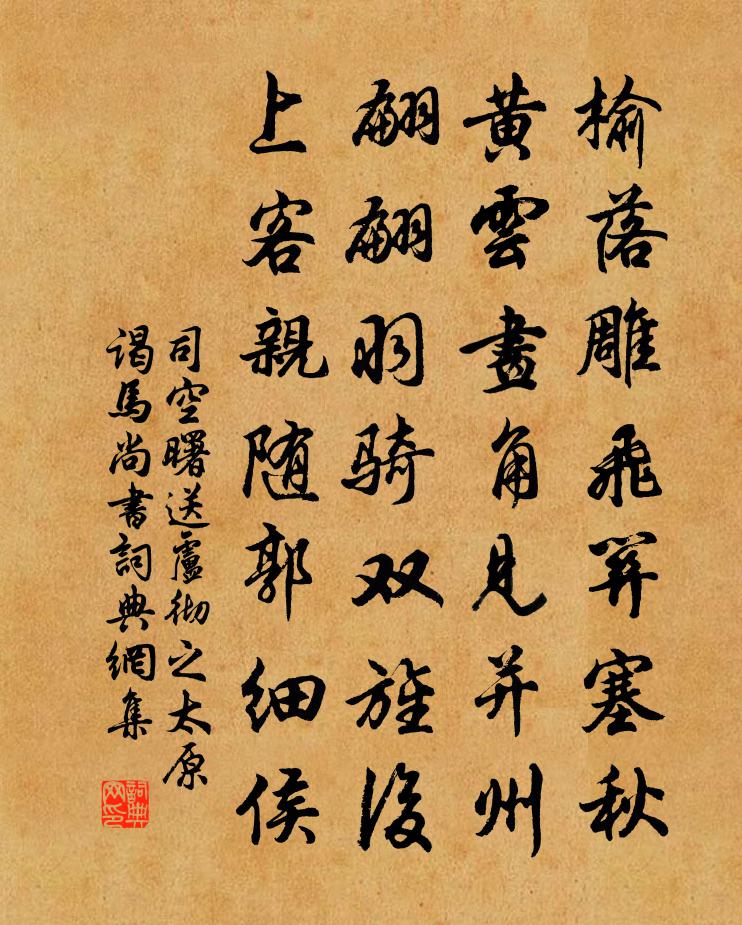 榆落雕飛關塞秋
黄雲畫角見并州
翩翩羽騎双旌後
上客親随郭細侯
司空曙送盧彻之太原
谒馬尚書詞典網集
詞典网印